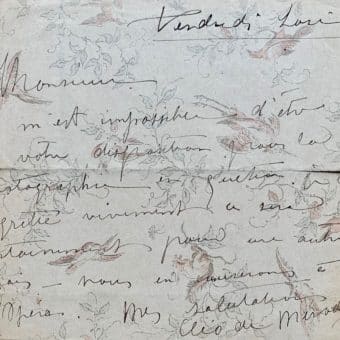 Vendredi Soir
Monsieur.
m'est impossible d'être
votre disposition pour la
otographie en question. je
grette vivement ce sera
tainement pour une autre
ais - nous en causerons à
Opéra. Mes salutations
Cléo de Mérod